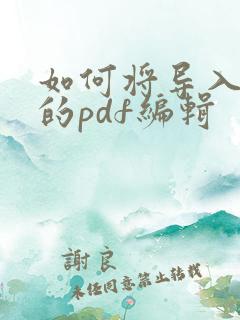 如何将导入
的pdf编辑
謝良
未经同意禁止转载